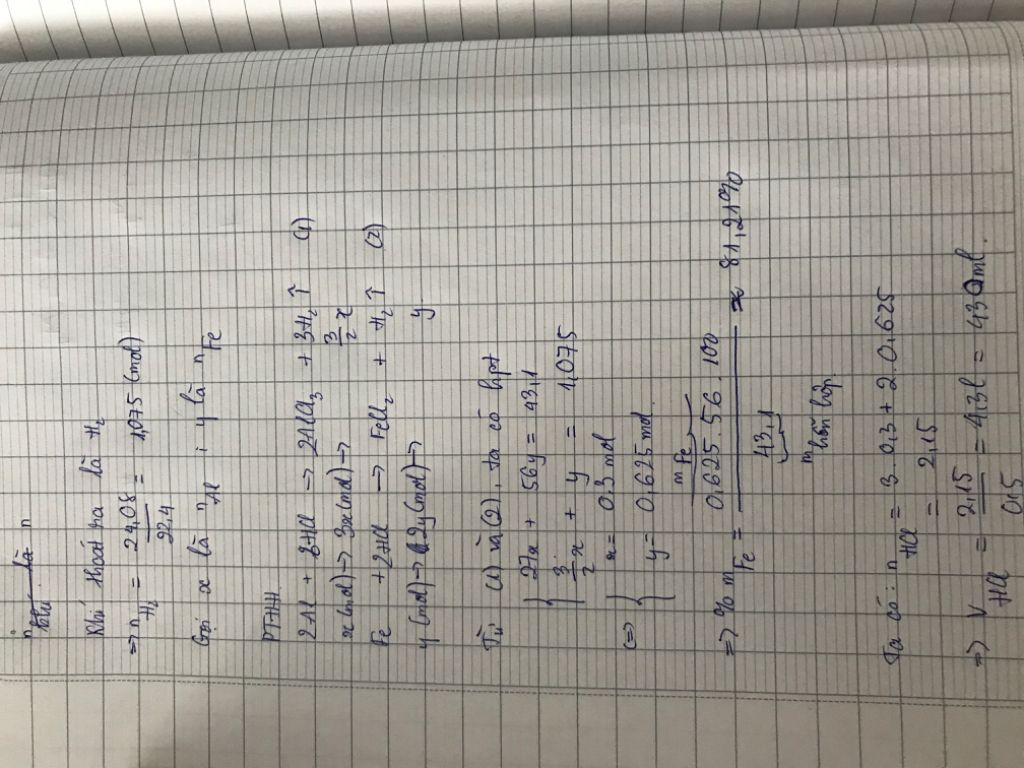 n khí là n
Khí thoát ra là H₂
=> n H₂ = 24,08 / 22,4 = 1,075 (mol)
Gọi x là n Al ; y là n Fe
PTHH
2Al + 6HCl -> 2AlCl₃ + 3H₂↑ (1)
x(mol) -> 3x(mol) -> 3/2 x
Fe + 2HCl -> FeCl₂ + H₂↑ (2)
y(mol) -> 2y(mol) -> y
Từ (1) và (2), ta có hpt
{ 27x + 56y = 43,1
3/2 x + y = 1,075
(=) { x = 0.3 mol
y = 0,625 mol
=> % m Fe = 0,625.56.100 / 43,1 ≈ 81,21%
m Fe
m hỗn hợp
Ta có: n HCl = 3.0,3 + 2.0,625
= 2,15
=> V HCl = 2,15 / 0,5 = 4,3l = 430ml.